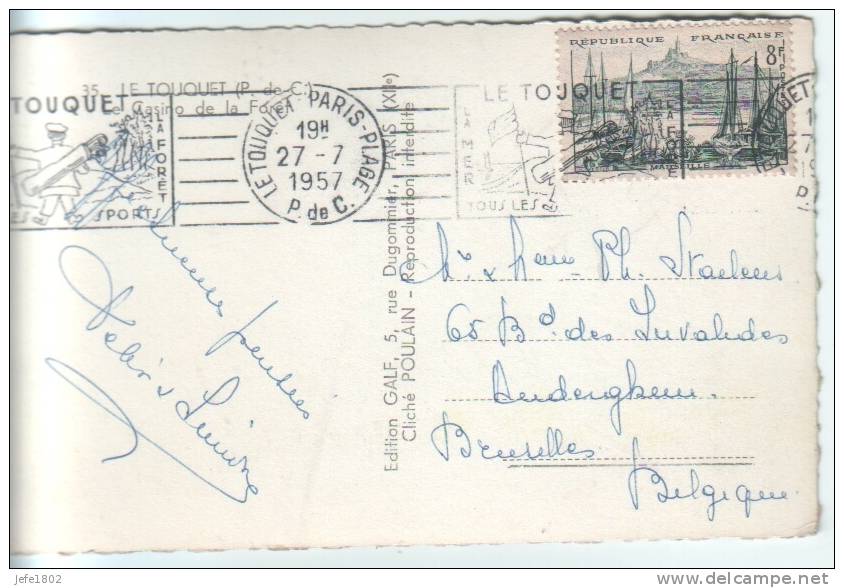 35. LE TOUQUET (P. de C.)
Le Casino de la Forêt
TOUQUET
LA FORÊT
SPORTS
LE TOUQUET - PARIS-PLAGE
19H
27 - 7
1957
P. de C.
LE TOUQUET
LA MER
TOUS LES
RÉPUBLIQUE FRANÇAISE
8F
MARSEILLE
Edition GALF, 5, rue Dugommier, PARIS (XIIe)
Cliché POULAIN - Reproduction interdite
pensées
Mr & Mme Ph. Staelens
65 Bd. des Invalides
Auderghem.
Bruxelles
Belgique
jefe1802
delcampe.net